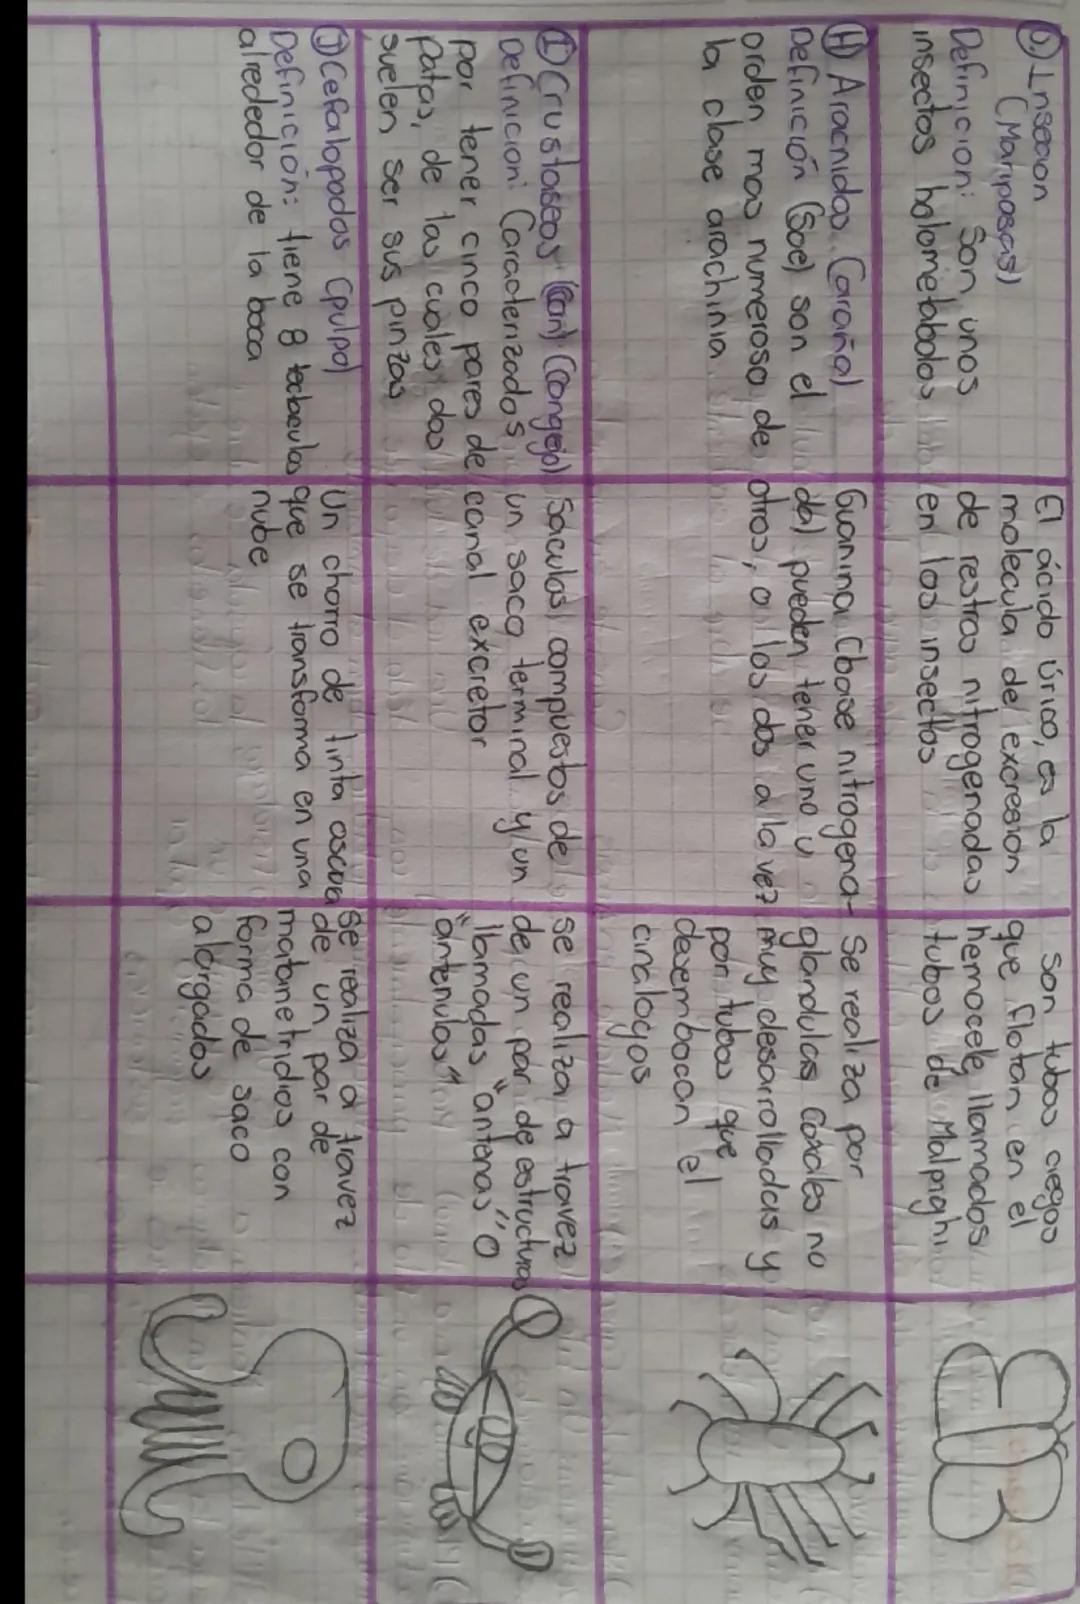 G) Insecon
(Mariposas)
Definicion: Son unos
insectos holometabolos
El ácido úrico, es la
molecula de excresion
de restros nitrogenadas
en los insectos
son tubos ciegos
que flotan en el
hemocele llamados
tubos de Malpighi
H) Aracnidos (araña)
Definición (Soe) son el
orden mas numeroso de
la clase arachinia
Guanina (base nitrogena-
da) pueden tener uno u
otros, o los dos a la vez
Se realiza por
glandulas Coxales no
muy desarrolladas y
por tubos que
desembocan el
ciralogos
I) Crustaseos (can) (congejo)
Definicion: Caracterizados
por tener cinco pares de
patas, de las cuales dos
suelen ser sus pinzas
Saculos compuestos de
un saco terminal y un
canal excretor
se realiza a travez
de un par de estructuras
llamadas "antenas" o
"antenulas"
J) Cefalopodos (pulpo)
Definición: tiene 8 tectaculos
alrededor de la boca
Un chorro de tinta oscura
que se transforma en una
nube
Se realiza a travez
de un par de
matanetridios con
forma de saco
alargados